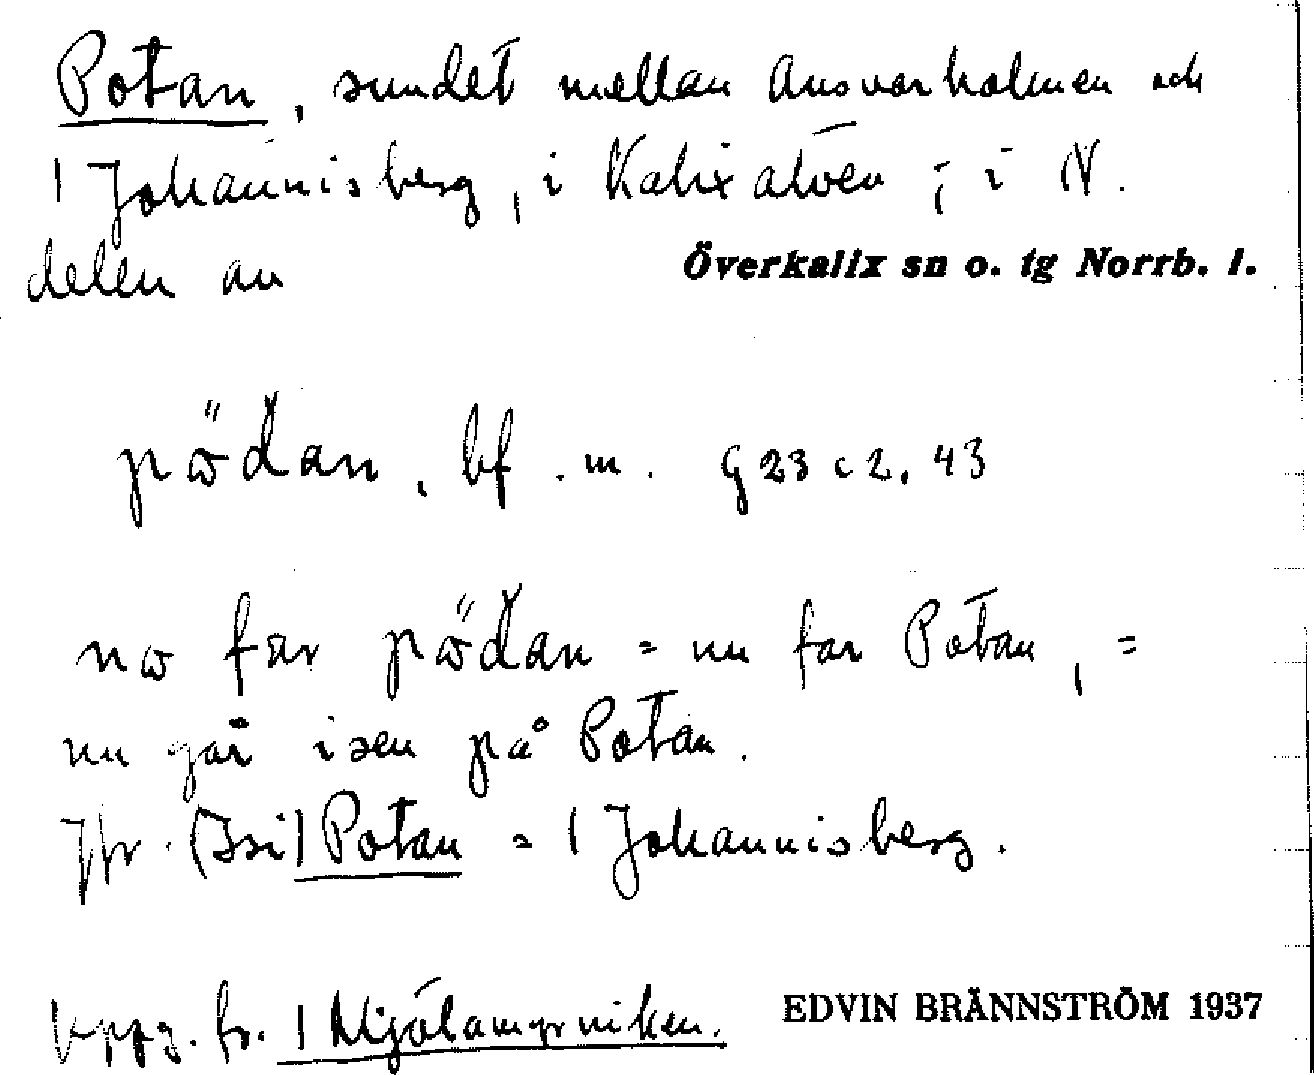 Potan, sundet mellan Ansvarholmen och
1 Johannisberg, i Kalixälven; i N.
delen av
Överkalix sn o. tg Norrb. l.
pödan, bf. m. G 23 c 2, 43
no far pödan = nu far Potan, =
nu går isen på Potan.
Jfr. (Isi) Potan = 1 Johannisberg.
Uppg. fr. 1
EDVIN BRÄNNSTRÖM 1937